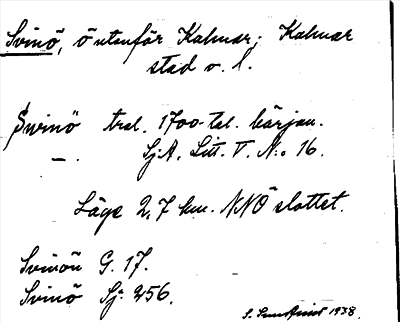 Svinö, ö utanför Kalmar; Kalmar
stad o. l.
Svinö trol. 1700-tal. början.
— . SjA. Lit. V. N:o 16.
Läge 2,7 km. NNÖ slottet.
Svinön G. 17.
Svinö Sj: 256.
S. 1938.